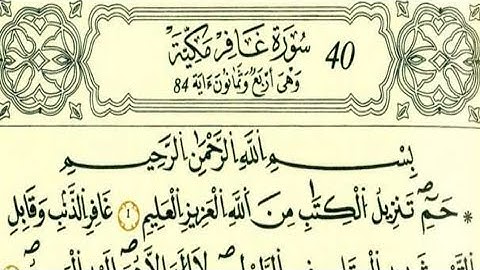 40 سُورَةُ غَافِرٍ مَكِّيَّةٌ
وَهْيَ أَرْبَعٌ وَثَمَانُونَ ءَايَةً 84
بِسْمِ اِللَّهِ اِلرَّحْمَٰنِ اِلرَّحِيمِ
* حَمِٓ تَنزِيلُ اُلْكِتَٰبِ مِنَ اَللَّهِ اِلْعَزِيزِ اِلْعَلِيمِ 1 غَافِرِ اِلذَّنۢبِ وَقَابِلِ